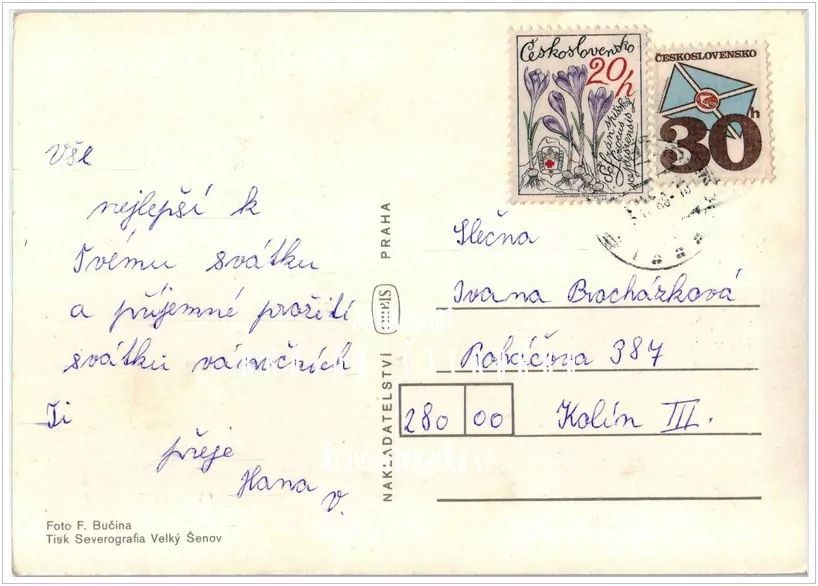 Vše
nejlepší k
Tvému svátku
a příjemné prožití
svátku vánočních
Ti
přeje
Hana V.
Foto F. Bučina
Tisk Severografia Velký Šenov
NAKLADATELSTVÍ
PRAHA
Československo
20h
ČESKOSLOVENSKO
30h
Slečna
Ivana Brocházková
Roháčova 387
280 00 Kolín III.